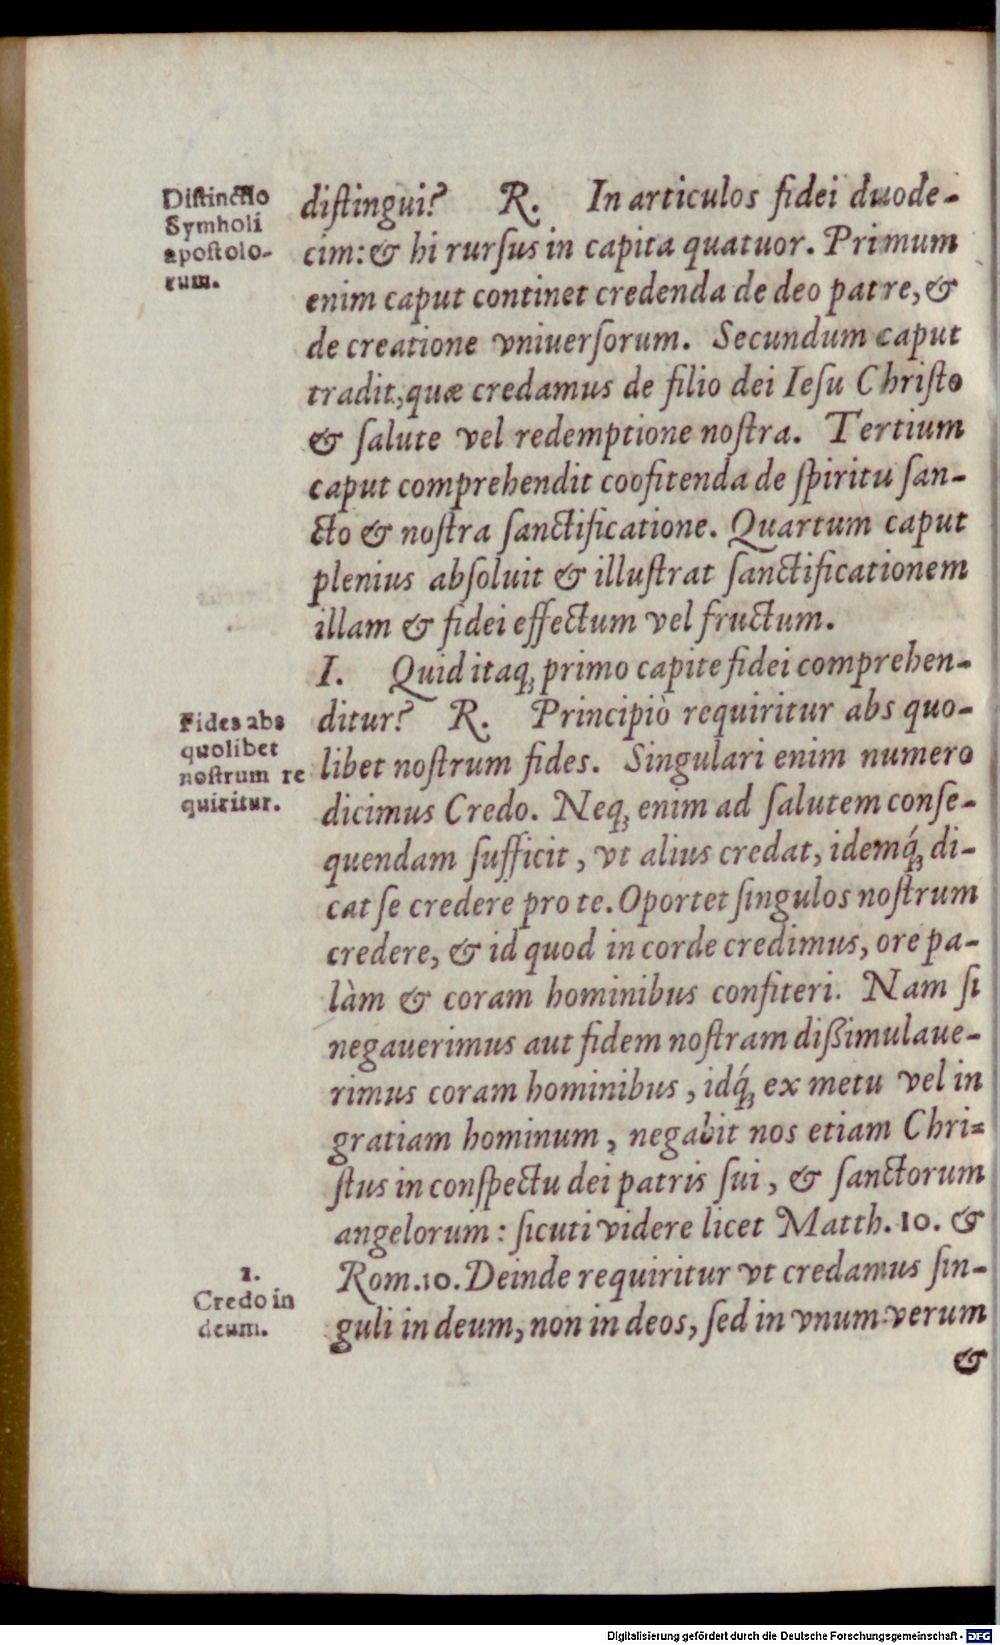 Distinctio
Symholi
apostolo-
rum.
distingui? R. In articulos fidei duode-
cim: & hi rursus in capita quatuor. Primum
enim caput continet credenda de deo patre, &
de creatione vniuersorum. Secundum caput
tradit, quæ credamus de filio dei Iesu Christo
& salute vel redemptione nostra. Tertium
caput comprehendit coofitenda de spiritu san-
cto & nostra sanctificatione. Quartum caput
plenius absoluit & illustrat sanctificationem
illam & fidei effectum vel fructum.
I. Quid itaq; primo capite fidei comprehen-
Fides abs
quolibet
nostrum re
quiritur.
ditur? R. Principiò requiritur abs quo-
libet nostrum fides. Singulari enim numero
dicimus Credo. Neq; enim ad salutem conse-
quendam sufficit, vt alius credat, idemq́; di-
cat se credere pro te. Oportet singulos nostrum
credere, & id quod in corde credimus, ore pa-
làm & coram hominibus confiteri. Nam si
negauerimus aut fidem nostram dißimulaue-
rimus coram hominibus, idq́; ex metu vel in
gratiam hominum, negabit nos etiam Chri-
stus in conspectu dei patris sui, & sanctorum
angelorum: sicuti videre licet Matth. 10. &
1.
Credo in
deum.
Rom. 10. Deinde requiritur vt credamus sin-
guli in deum, non in deos, sed in vnum verum
&
Digitalisierung gefördert durch die Deutsche Forschungsgemeinschaft - DFG